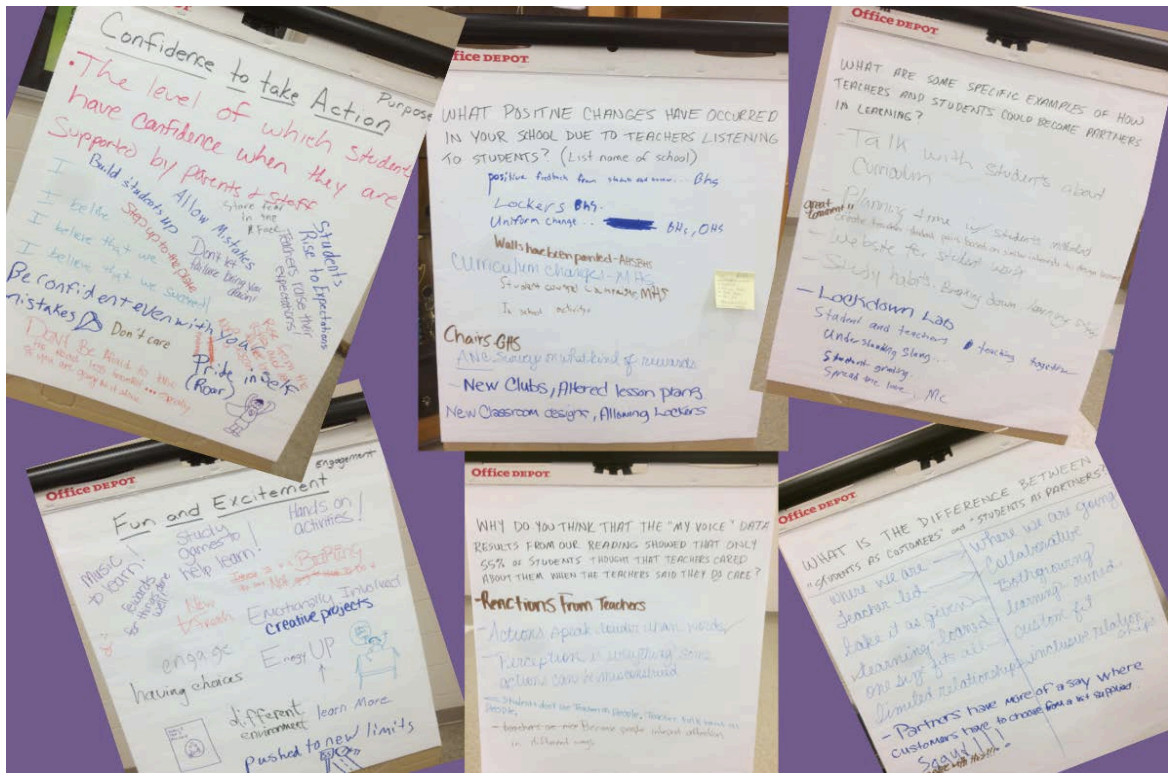 Confidence to take Action
Purpose
• The level of which students
have confidence when they are
Supported by parents + staff
I
I belive
I believe that we
I believe that we succeed!
Build students up
Allow Mistakes
Step up to the plate
Don't let
failure bring you
down!
Students
Rise to Expectations
Teachers raise their
expectations
Be confident even with
mistakes
Don't care
you
Pride in Self
(Roar)
Don't Be Afraid to
Office DEPOT
WHAT POSITIVE CHANGES HAVE OCCURRED
IN YOUR SCHOOL DUE TO TEACHERS LISTENING
TO STUDENTS? (List name of school)
positive feedback from ... Bhs
Lockers BHS-
Uniform change.. BHS, OHS
Walls have been painted -
Curriculum changes - MHS
Student council MHS
In school activities
Chairs-GHS
survey on what kind of rewards
- New Clubs, Altered lesson plans
New Classroom designs, Allowing Lockers
Office DEPOT
WHAT ARE SOME SPECIFIC EXAMPLES OF HOW
TEACHERS AND STUDENTS COULD BECOME PARTNERS
IN LEARNING?
- Talk with students about
Curriculum
- Planning time w/ students included
great
- Website for student work
- Study habits,
- Lockdown Lab
Student and teachers teaching together
Understanding Slang...
Student grading.
Spread the love, Mc
Office DEPOT
engagement
Fun and Excitement
Music!
to learn!
Study
games to
help learn!
Hands on
activities!
Rewards
for things done
well
New
Emotionally Involved
creative projects
engage
Energy UP
having choices
different
environment
learn More
pushed to new limits
Office DEPOT
WHY DO YOU THINK THAT THE "MY VOICE" DATA
RESULTS FROM OUR READING SHOWED THAT ONLY
55% OF STUDENTS THOUGHT THAT TEACHERS CARED
ABOUT THEM WHEN THE TEACHERS SAID THEY DO CARE?
- Reactions From Teachers
- Actions speak louder than words
- Perception is everything some
actions can be misconstrued
people.
in different ways
Office DEPOT
WHAT IS THE DIFFERENCE BETWEEN
"STUDENTS AS CUSTOMERS" and "STUDENTS AS PARTNERS?"
where we are
teacher led
take it as given
learning-loaned
one size fits all
limited relationships
where we are going
collaborative
Both growing
learning owned
custom fit
inclusive relationships
- Partners have more of a say where
customers have to choose from a list supplied.